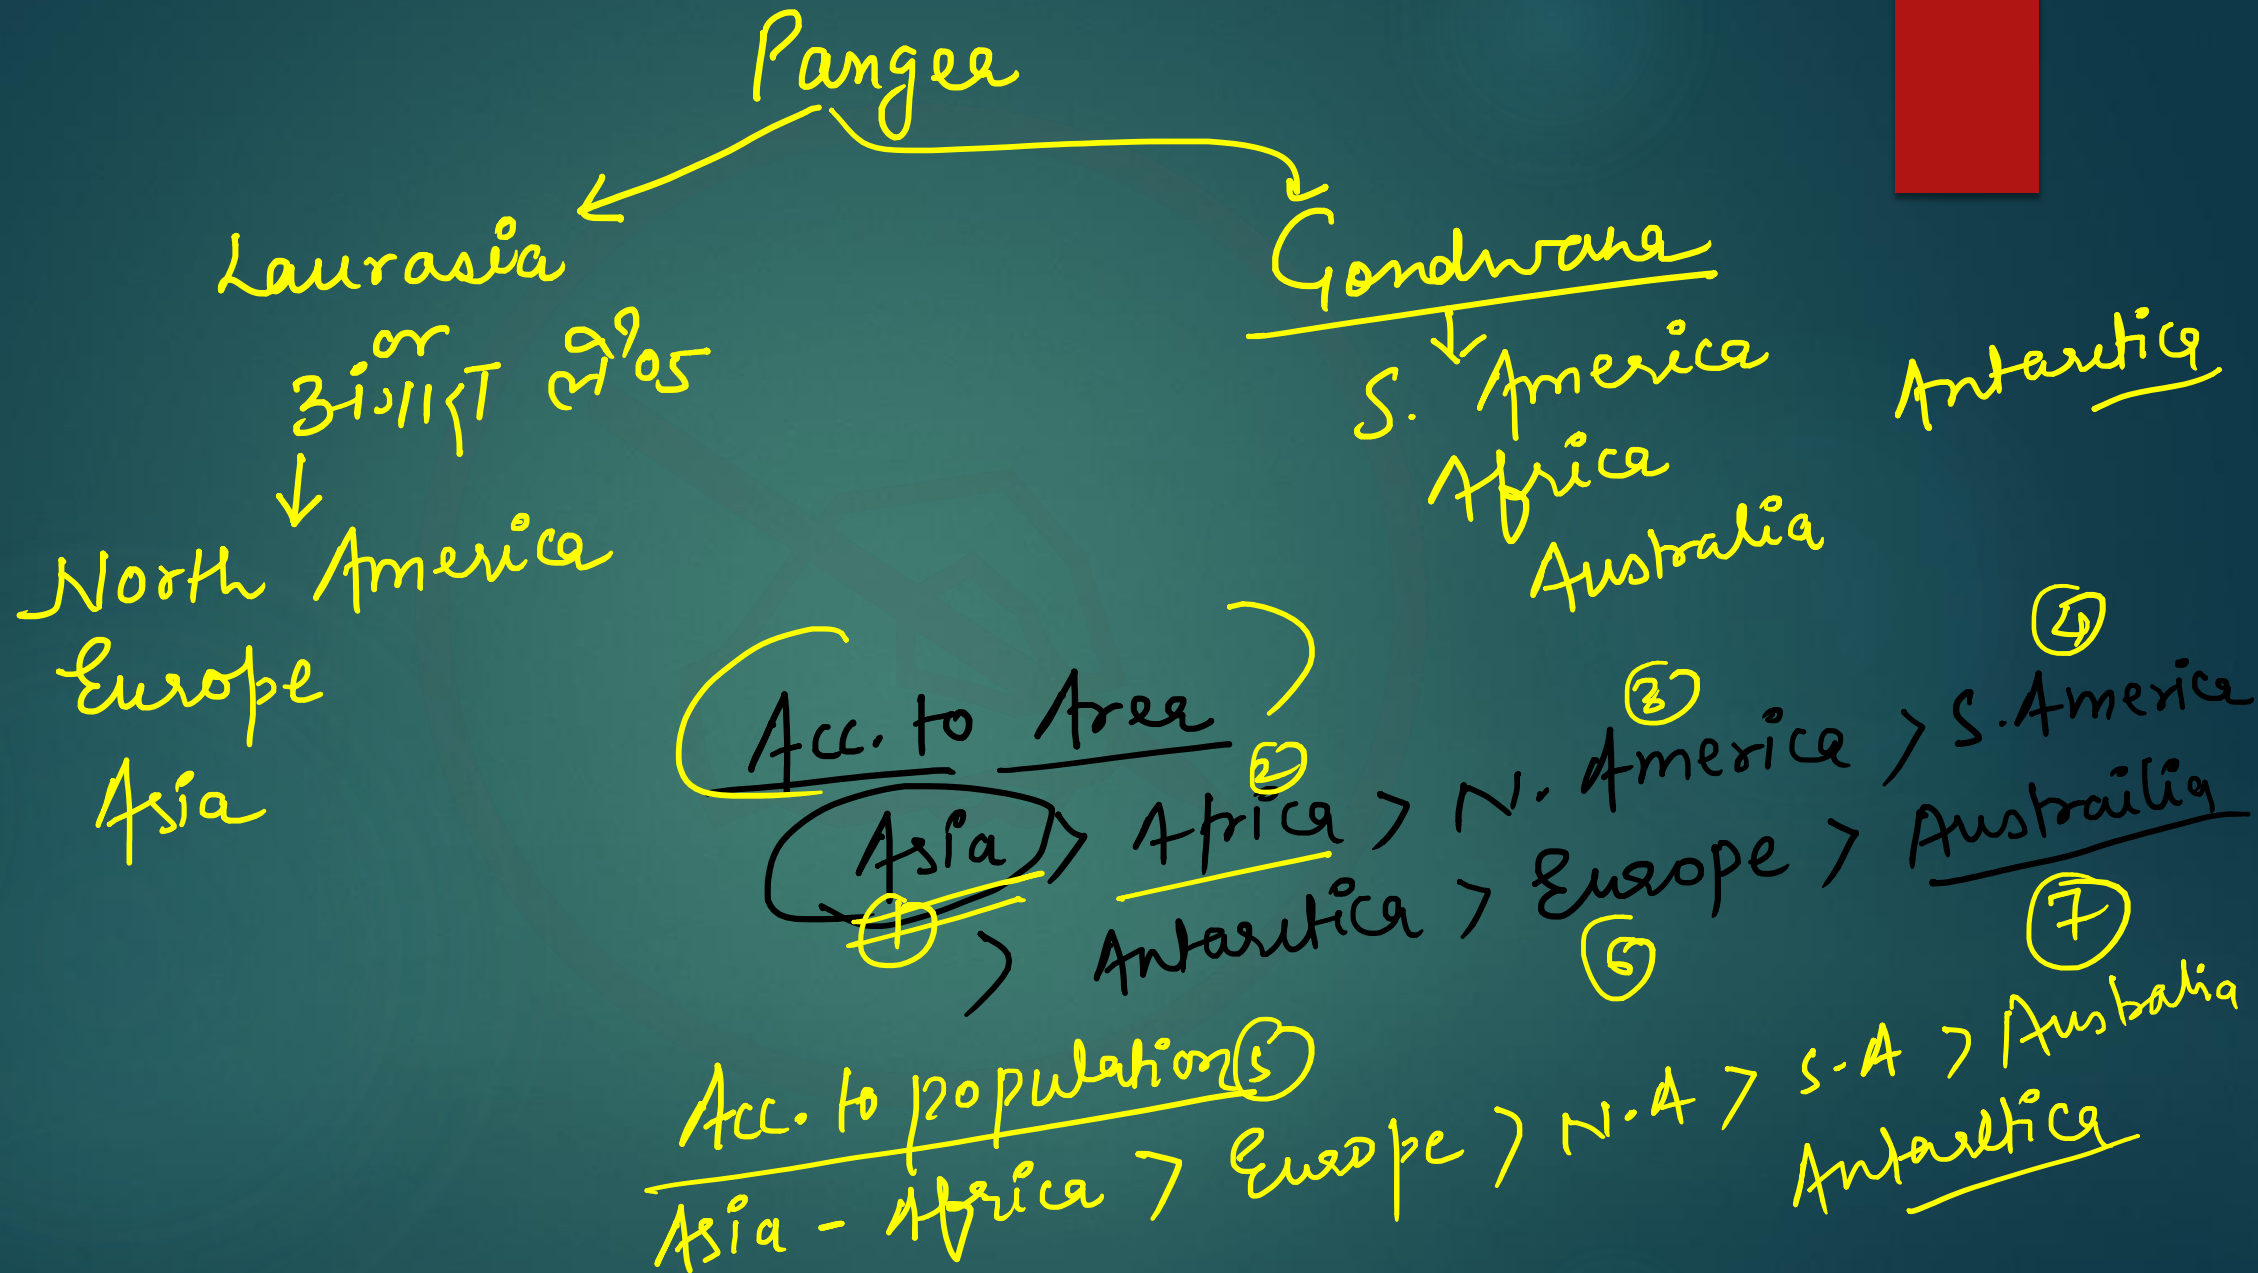 Pangea
Laurasia
or
अंगारा लैण्ड
North America
Europe
Asia
Gondwana
S. America
Africa
Australia
Antarctica
Acc. to Area
Asia > Africa > N. America > S. America
1 2 3 4
> Antarctica > Europe > Austrailia
5 6 7
Acc. to population
Asia - Africa > Europe > N.A > S.A > Australia
Antarctica